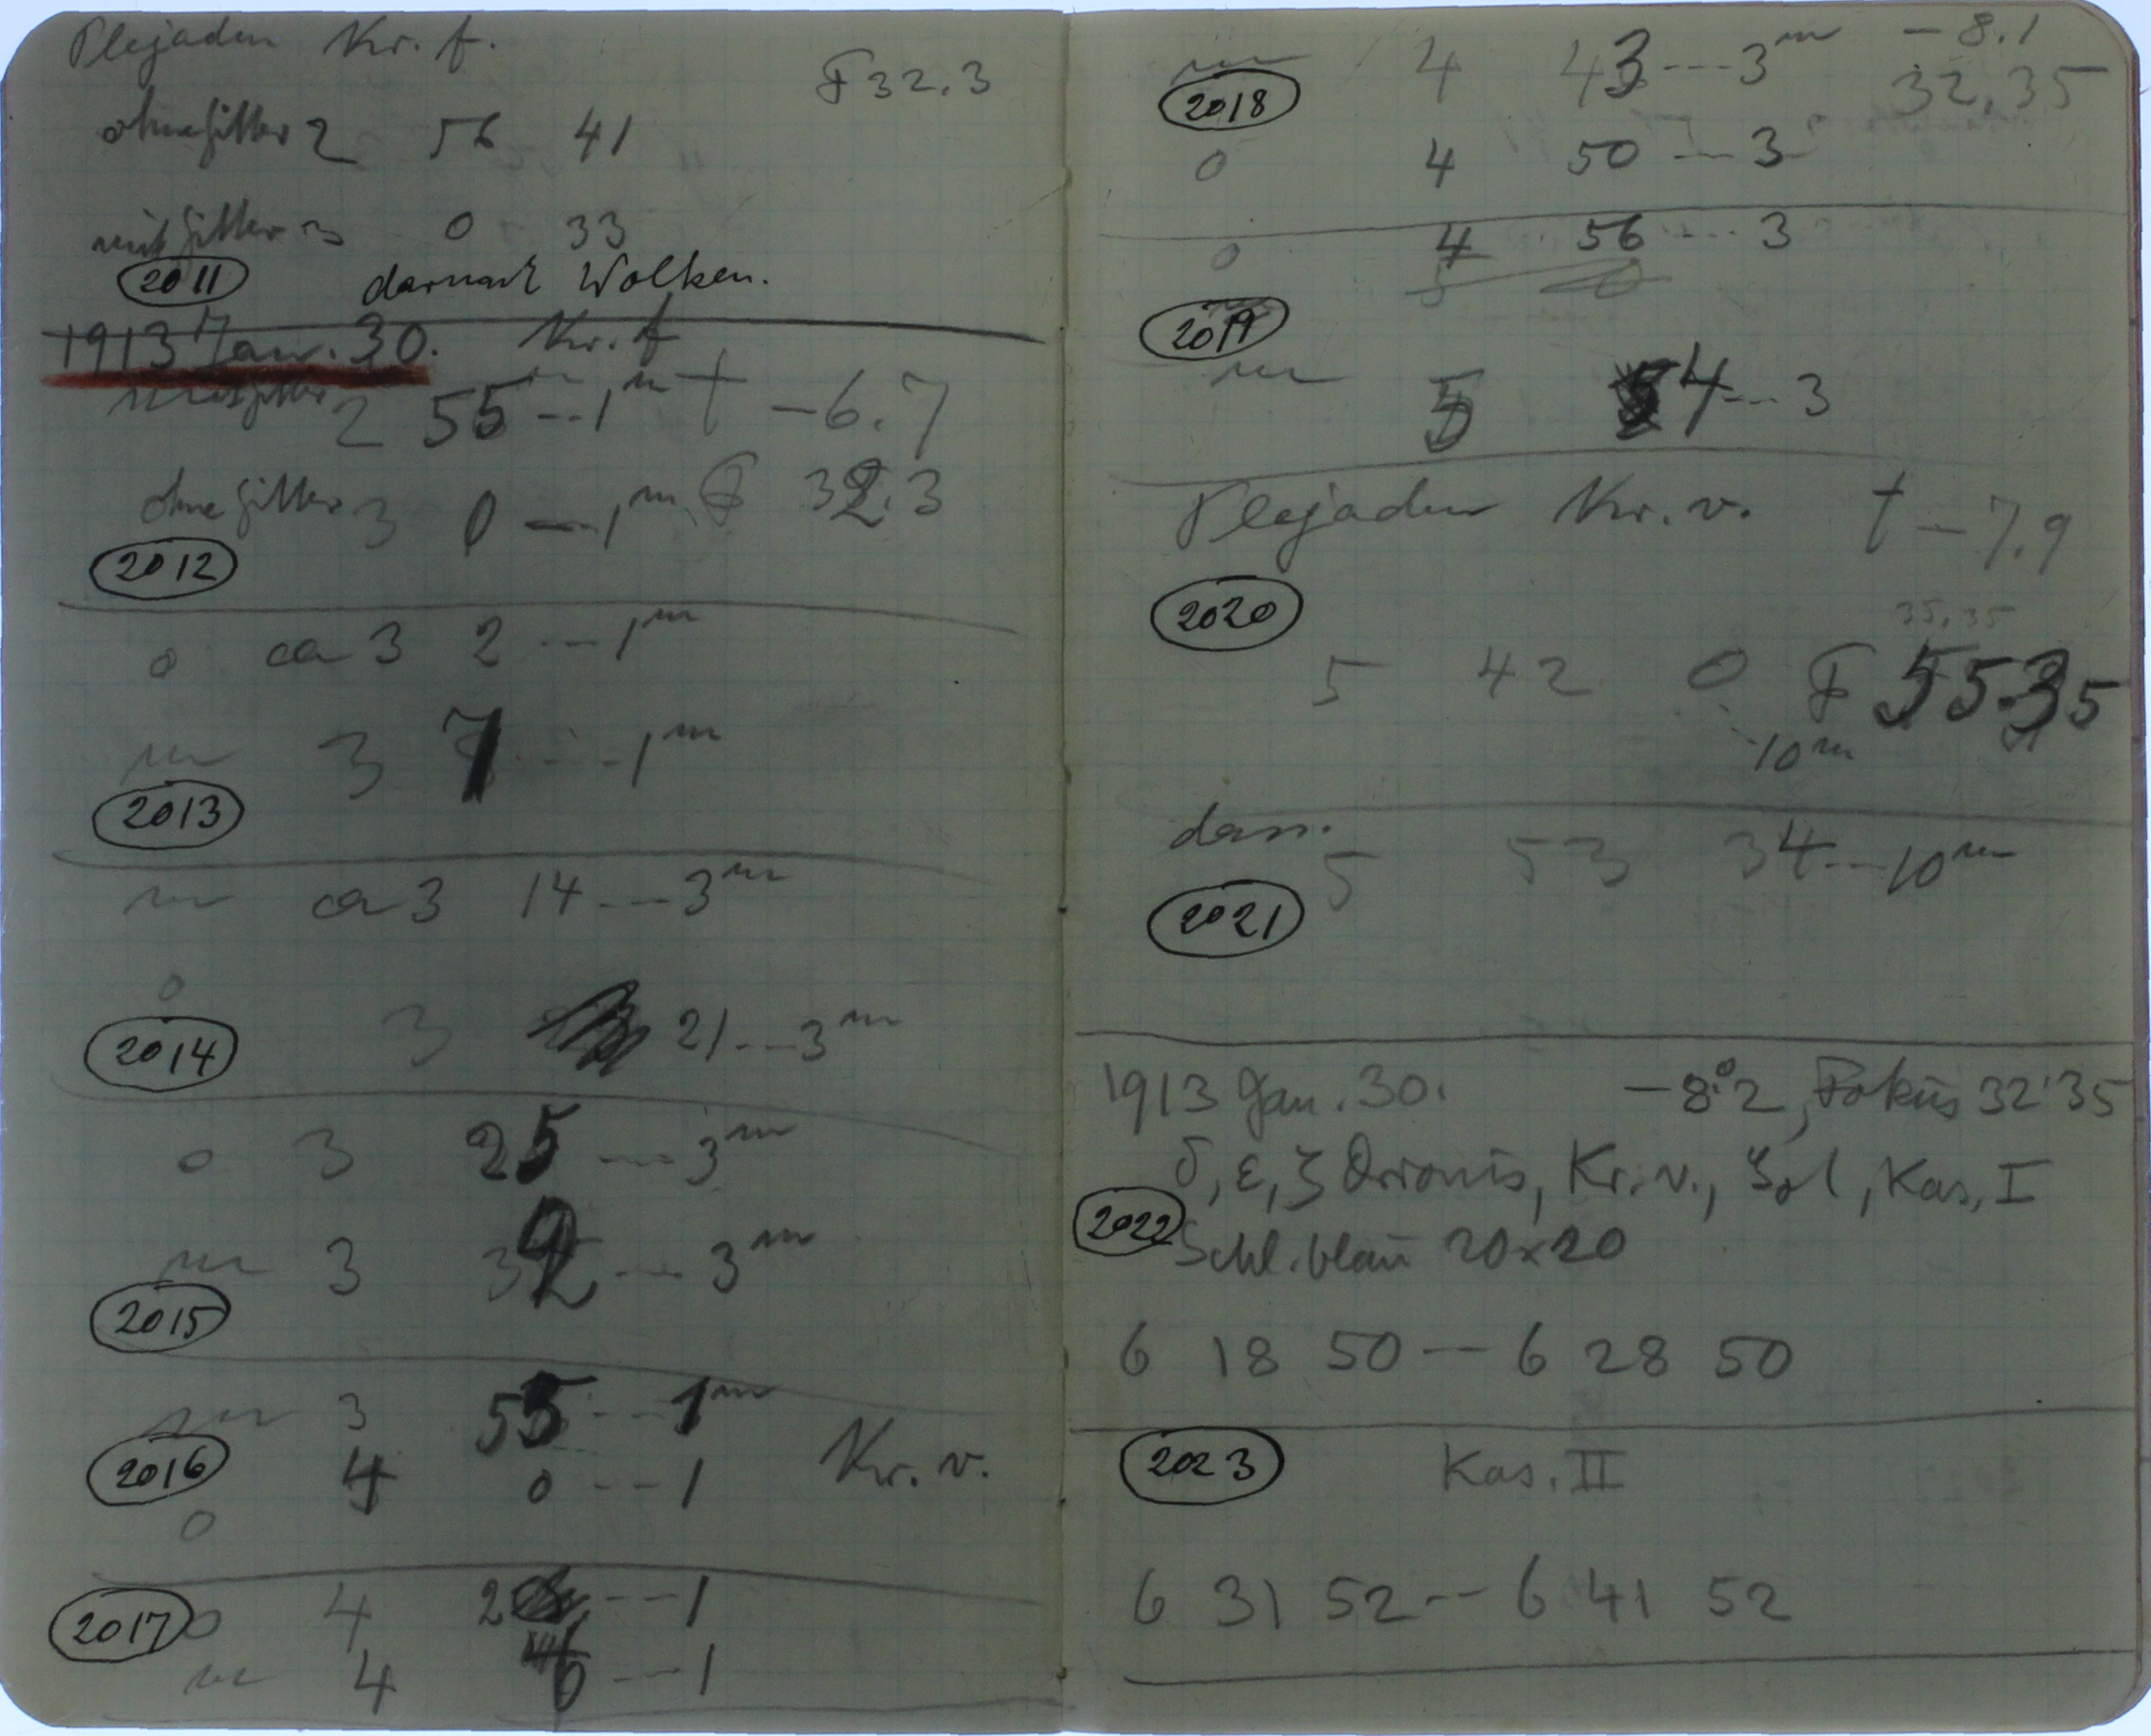 Plejaden Kr. f.
F 32.3
ohne Gitter 2 56 41
mit Gitter 3 0 33
2011 darnach Wolken.
1913 Jan. 30. Kr. f
mit Gitter 2 55 -- 1m t -6.7
ohne Gitter 3 0 -- 1m F 32.3
2012
o ca 3 2 --- 1m
m 3 7 --- 1m
2013
m ca 3 14 --- 3m
o
2014 3 21 --- 3m
o 3 25 --- 3m
m 3 32 --- 3m
2015
m 3 55 --- 1m
2016 4 0 --- 1 Kr. v.
o
2017 o 4 2 --- 1
m 4 6 --- 1
m 4 43 --- 3m -8.1
2018 32.35
o 4 50 --- 3
o 4 56 --- 3
5 0
2019
m 5 4 --- 3
Plejaden Kr. v. t -7.9
2020
35.35
5 42 0 F 55.35
--- 10m
dass.
5 53 34 --- 10m
2021
1913 Jan. 30. -8°.2, Fokus 32.35
δ, ε, ζ Orionis, Kr. v., Kas. I
2022 Schl. blau 20x20
6 18 50 -- 6 28 50
2023 Kas. II
6 31 52 -- 6 41 52